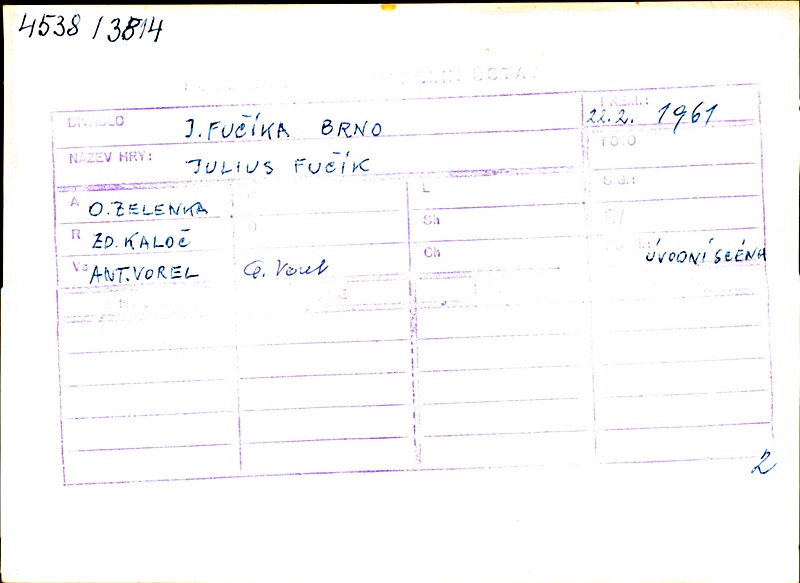 4538 / 3814
DIVADLO J. FUČÍKA BRNO
PREM.: 22.2. 1961
NÁZEV HRY: JULIUS FUČÍK
FOTO
S.g.:
A O. ZELENKA
L
R ZD. KALOČ
O
Sh
Vs ANT. VOREL
A. Vorel
Ch
ÚVODNÍ SCÉNA
2